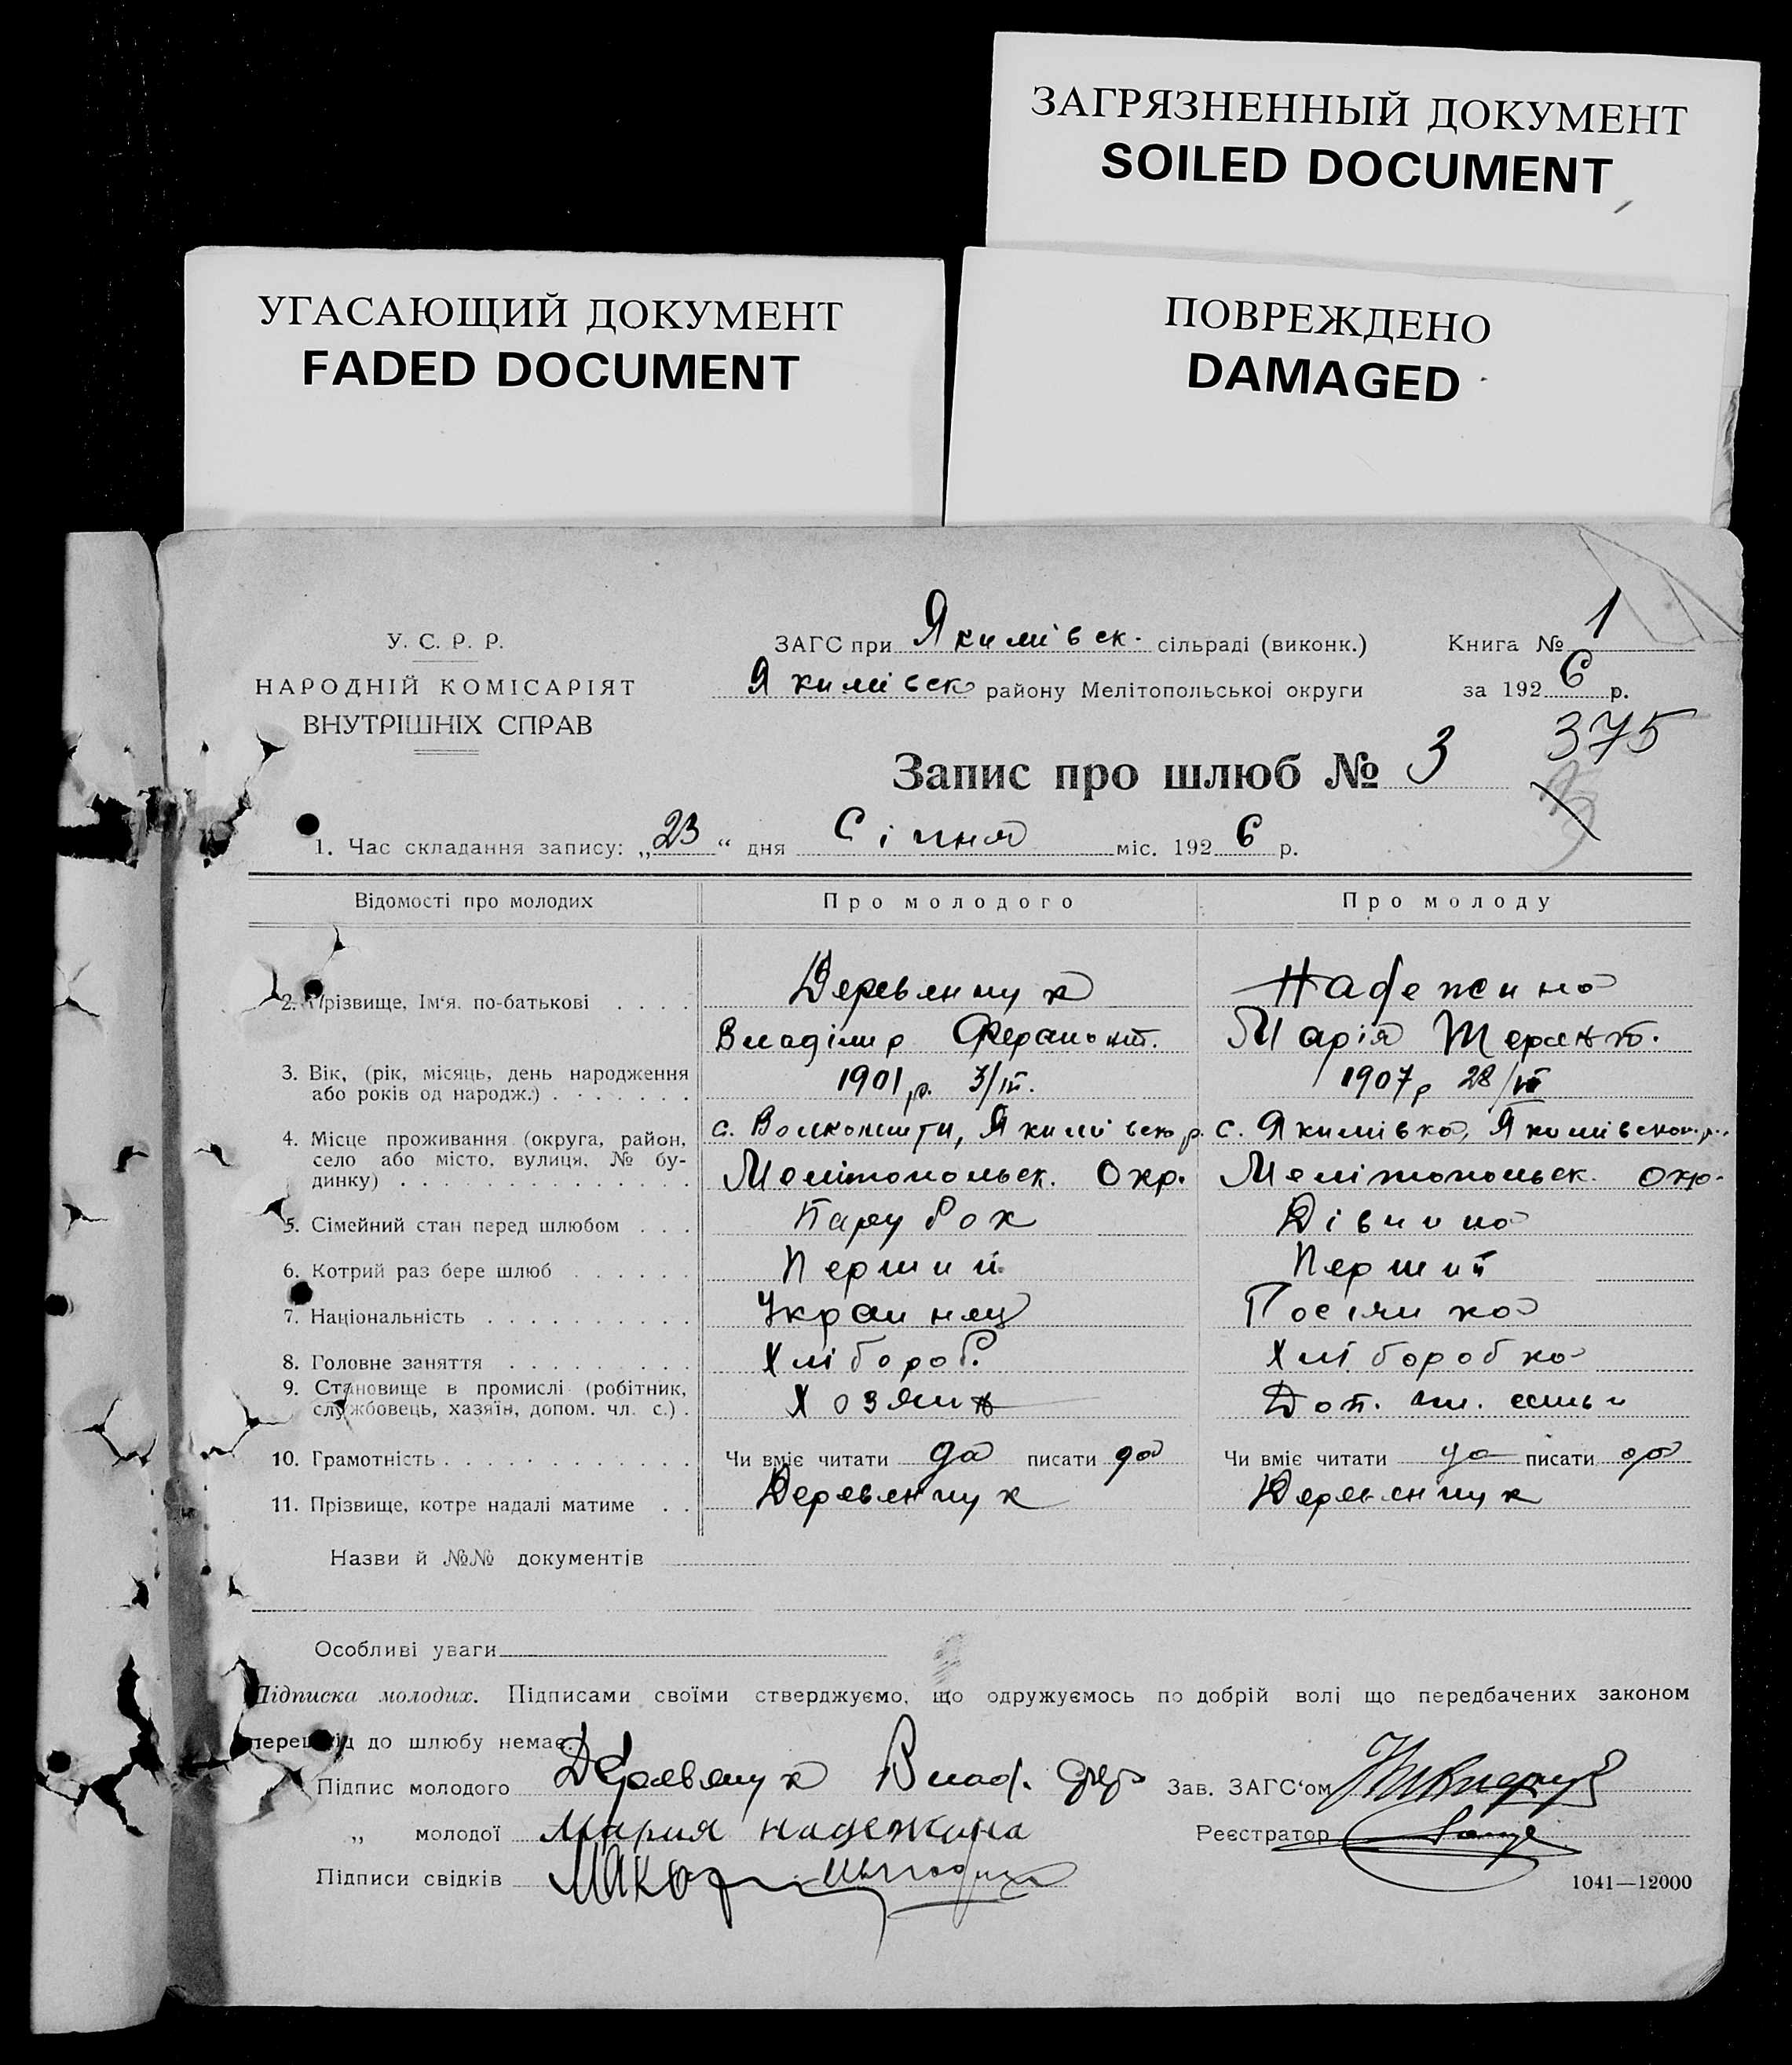 ЗАГРЯЗНЕННЫЙ ДОКУМЕНТ
SOILED DOCUMENT
УГАСАЮЩИЙ ДОКУМЕНТ
FADED DOCUMENT
ПОВРЕЖДЕНО
DAMAGED
У. С. Р. Р.
НАРОДНІЙ КОМІСАРІЯТ
ВНУТРІШНІХ СПРАВ
ЗАГС при Якимівск. сільраді (виконк.)
Якимівско району Мелітопольської округи
Книга № 1
за 1926 р.
375
Запис про шлюб № 3
1. Час складання запису: „23“ дня Січня міс. 1926 р.
Відомості про молодих Про молодого Про молоду
2. Прізвище, Ім‘я. по-батькові . . . . Деревянчук Надежина
Владімир Ферапонт. Марія Терент.
3. Вік, (рік, місяць, день народження або років од народж.) 1901 р. 1907 р
4. Місце проживання (округа, район, село або місто, вулиця, № будинку) с. Якимівка,
Мелітопольск. Окр. Мелітопольск. окр.
5. Сімейний стан перед шлюбом . . . Парубок Дівчина
6. Котрий раз бере шлюб . . . . . . Перший Перший
7. Національність . . . . . . . . . . Украинец
8. Головне заняття . . . . . . . . . Хлібороб. Хліборобка
9. Становище в промислі (робітник, службовець, хазяїн, допом. чл. с.) . Хозяин Доп. чл. семьи
10. Грамотність . . . . . . . . . . . . Чи вміє читати да писати да Чи вміє читати да писати да
11. Прізвище, котре надалі матиме . . Деревянчук Деревянчук
Назви й №№ документів
Особливі уваги
Підписка молодих. Підписами своїми стверджуємо, що одружуємось по добрій волі що передбачених законом
перешкід до шлюбу немає.
Підпис молодого Деревянчук Влад. Зав. ЗАГС‘ом
„ молодої Мария надежина Реєстратор
Підписи свідків
1041—12000